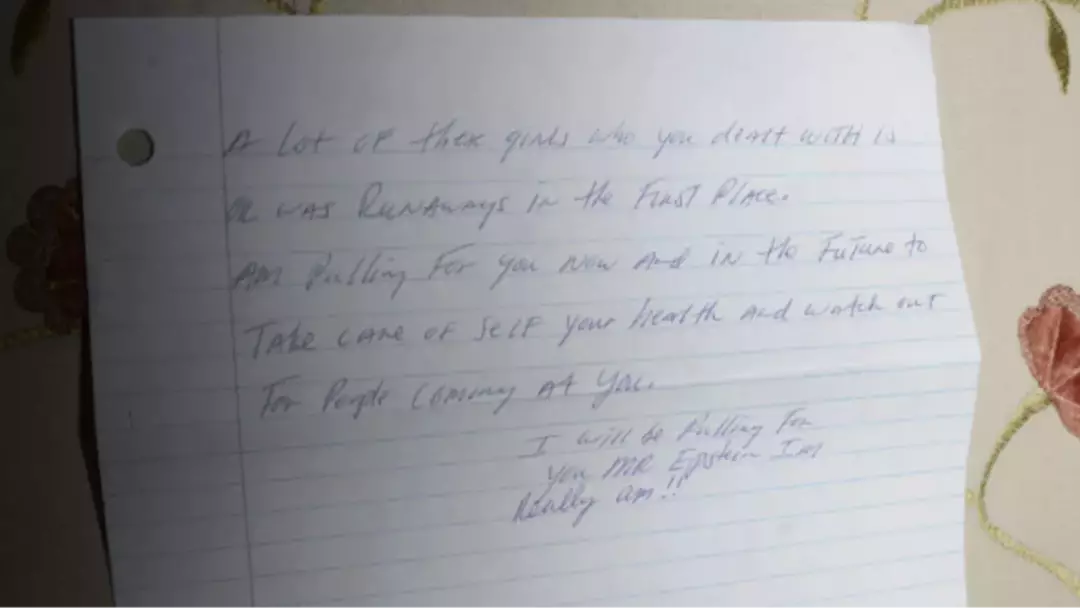 A lot of these girls who you dealt with is
or was Runaways in the First Place.
Am Pulling For you Now And in the Future to
Take care of self your Health And watch out
For People coming At You.
I will be Pulling For
you MR Epstein I'm
Really am!!